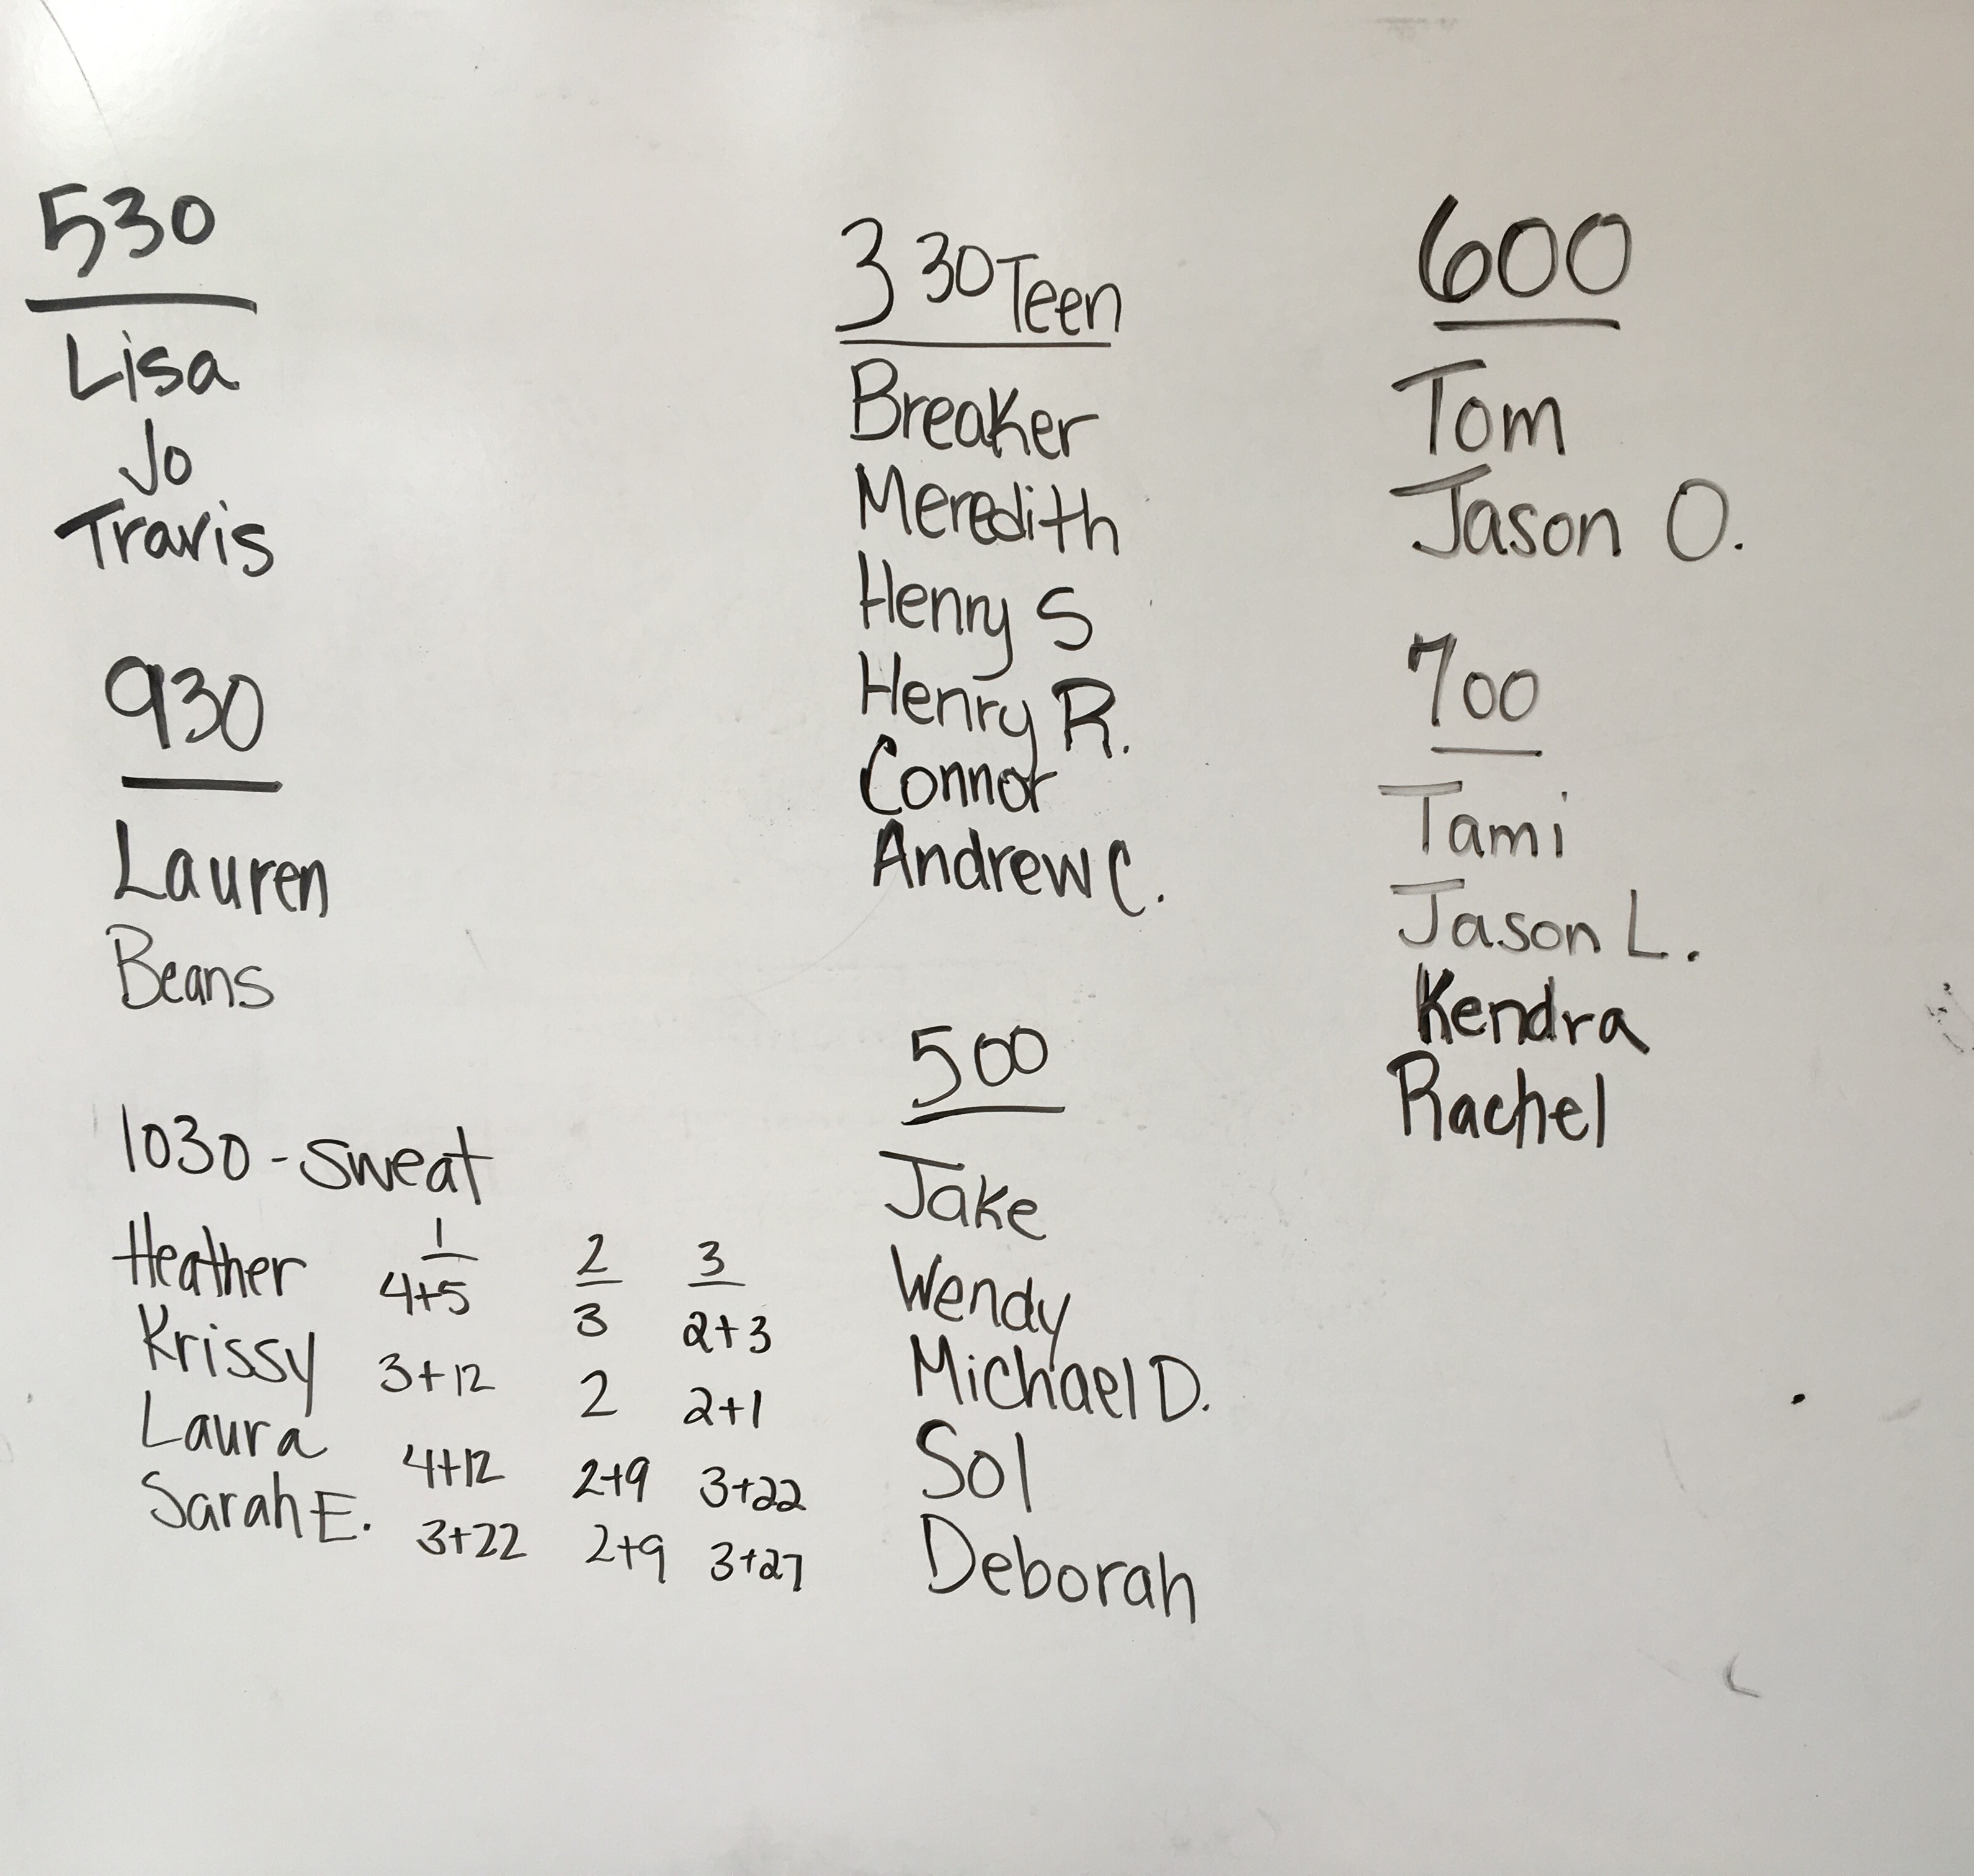 530
Lisa
Jo
Travis
930
Lauren
Beans
1030 - Sweat
1 2 3
Heather 4+5 3 2+3
Krissy 3+12 2 2+1
Laura 4+12 2+9 3+22
Sarah E. 3+22 2+9 3+27
330 Teen
Breaker
Meredith
Henry S
Henry R.
Connor
Andrew C.
500
Jake
Wendy
Michael D.
Sol
Deborah
600
Tom
Jason O.
700
Tami
Jason L.
Kendra
Rachel